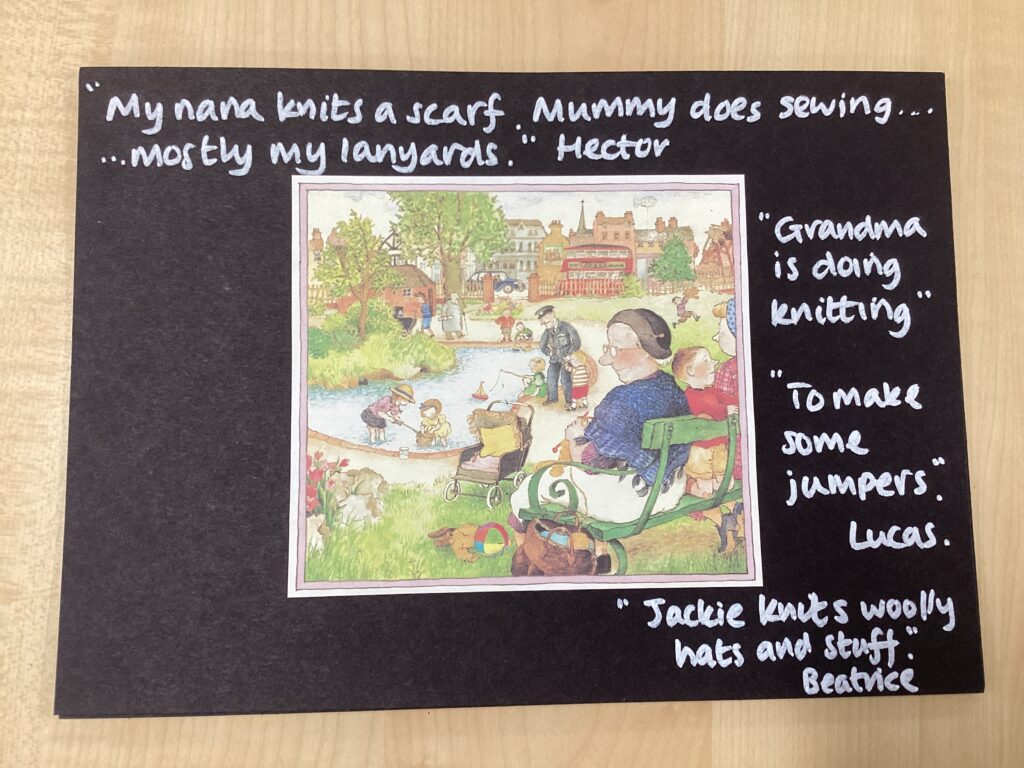 "My nana knits a scarf. Mummy does sewing....
...mostly my lanyards." Hector
"Grandma
is doing
knitting"
"To make
some
jumpers".
Lucas.
"Jackie knits woolly
hats and stuff".
Beatrice